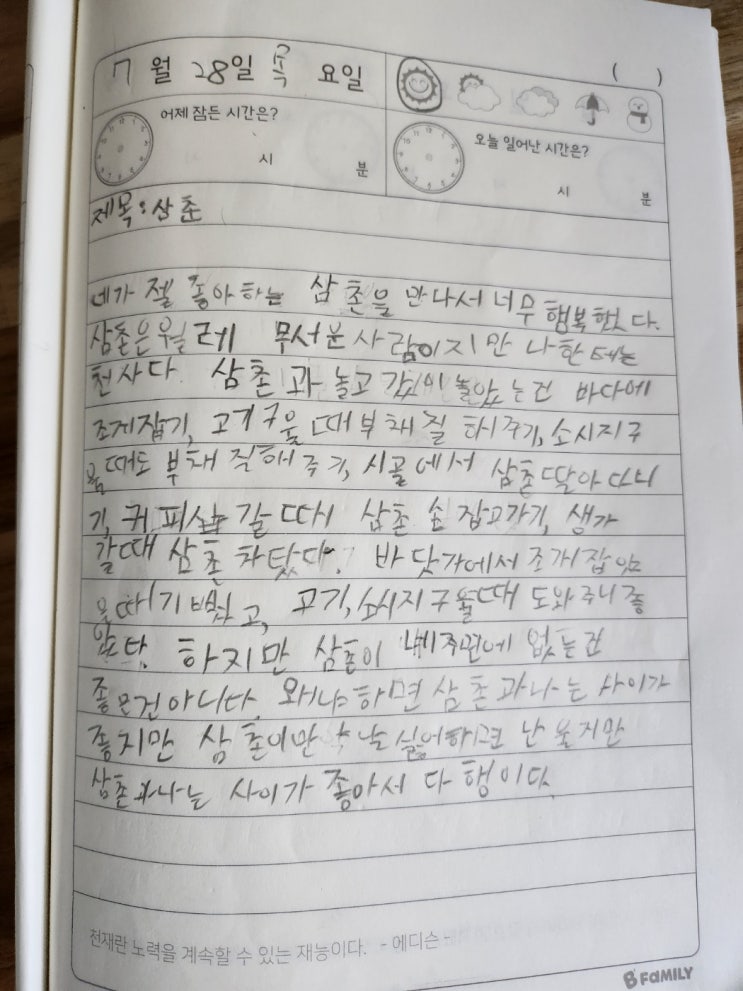 7월 28일 목요일 ( )
어제 잠든 시간은?
시 분
오늘 일어난 시간은?
시 분
제목:삼촌
네가 젤 좋아하는 삼촌을 만나서 너무 행복했다.
삼촌은 월레 무서분 사람이지만 나한테는
천사다. 삼촌과 놀고 같이 놀았는건 바다에
조게잡기, 고기구울때 부채질 해주기, 소시지구
울때도 부채질해주기, 시골에서 삼촌 딸아다니
기, 귀피샾 갈때 삼촌 손 잡고가기, 생가
갈때 삼촌 차 탔다. 바닷가에서 조개 잡았
을때 기뻤고, 고기, 소시지 구울때 도와주니 좋
았다. 하지만 삼촌이 내 주변에 없는건
좋은건아니다. 왜냐하면 삼촌과나는 사이가
좋지만 삼촌이만약 날 싫어하면 난 울지만
삼촌과나는 사이가 좋아서 다행이다.
천재란 노력을 계속할 수 있는 재능이다. - 에디슨 -
B FaMILY